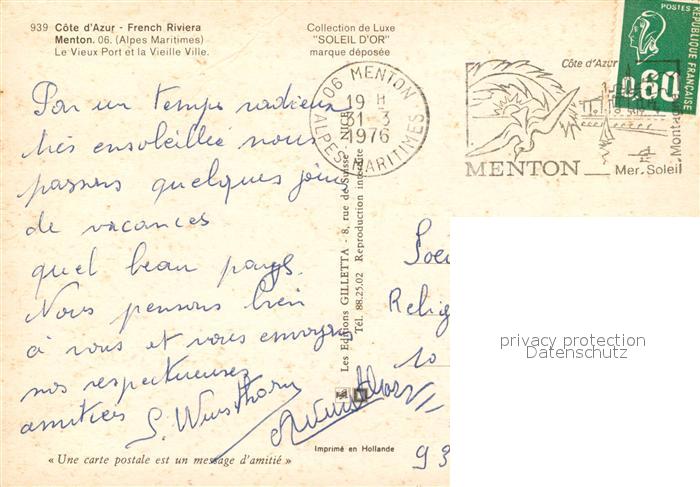 939 Côte d'Azur - French Riviera
Menton. 06. (Alpes Maritimes)
Le Vieux Port et la Vieille Ville.
Collection de Luxe
"SOLEIL D'OR"
marque déposée
POSTES
RÉPUBLIQUE FRANÇAISE
0,60
06 MENTON
19 H
31-3
1976
ALPES-MARITIMES
Côte d'Azur
MENTON
Mer. Soleil
Montagne
Par un temps radieux
très ensoleillée nous
passons quelques jours
de vacances
quel beau pays.
Nous pensons bien
à vous et vous envoyons
nos respectueuses
amitiés
Les Editions GILLETTA - 8, rue de Suisse - NICE
Tél. 88.25.02 Reproduction interdite
Soeu
Relig
10
93
privacy protection
Datenschutz
Imprimé en Hollande
« Une carte postale est un message d'amitié »